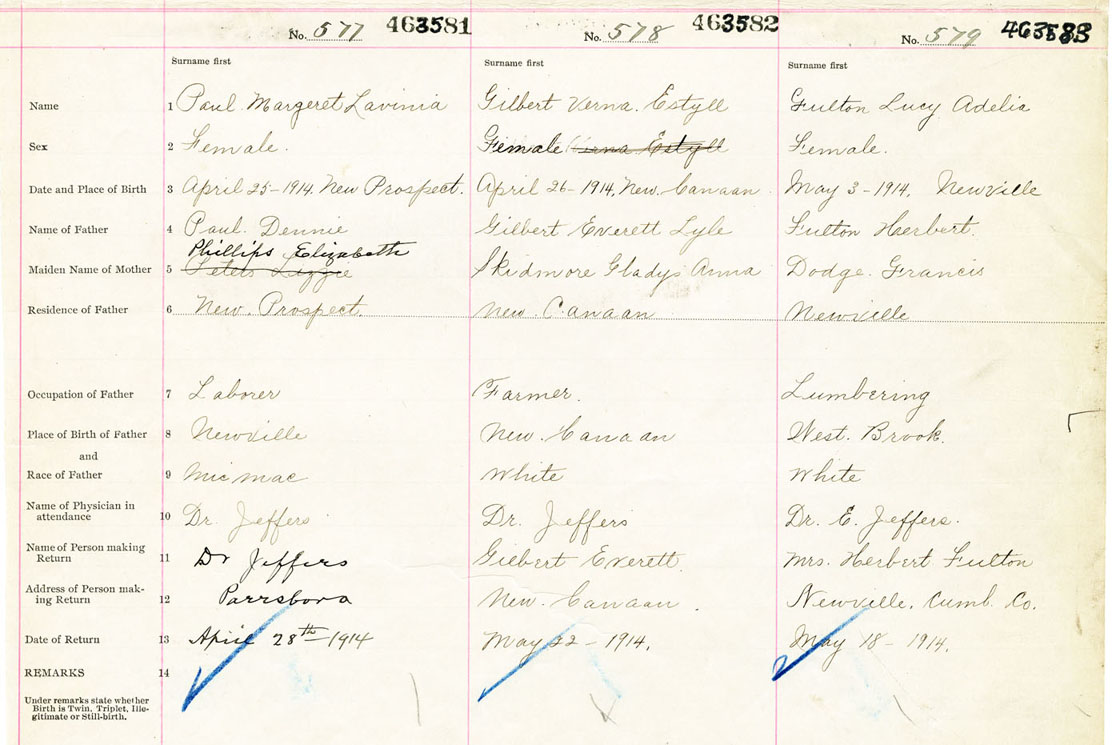 No. 577 463581 No. 578 463582 No. 579 463583
Surname first Surname first Surname first
Name 1 Paul. Margeret Lavinia Gilbert Verna. Estyll Fulton Lucy Adelia
Sex 2 Female. Female Verna Estyll Female.
Date and Place of Birth 3 April 25-1914. New Prospect. April 26-1914, New. Canaan May 3-1914, Newville
Name of Father 4 Paul. Dennie Gilbert Everett Lyle Fulton Herbert.
Phillips Elizabeth
Maiden Name of Mother 5 Lizzie Skidmore Gladys Anna Dodge. Francis
Residence of Father 6 New. Prospect. New. Canaan Newville
Occupation of Father 7 Laborer Farmer. Lumbering
Place of Birth of Father 8 Newville New. Canaan West. Brook.
and
Race of Father 9 Micmac White White
Name of Physician in
attendance 10 Dr. Jeffers Dr. Jeffers Dr. E. Jeffers.
Name of Person making
Return 11 Dr Jeffers Gilbert Everett. Mrs. Herbert Fulton
Address of Person mak-
ing Return 12 Parrsboro New. Canaan. Newville, Cumb. Co.
Date of Return 13 April 28th-1914 May 22-1914. May 18-1914.
REMARKS 14
Under remarks state whether
Birth is Twin, Triplet, Ille-
gitimate or Still-birth.